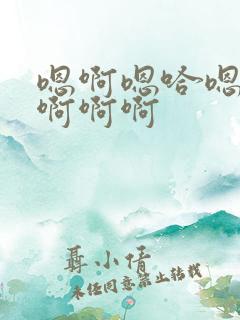 嗯啊嗯哈嗯
啊啊啊
聂小倩
未经同意禁止转载